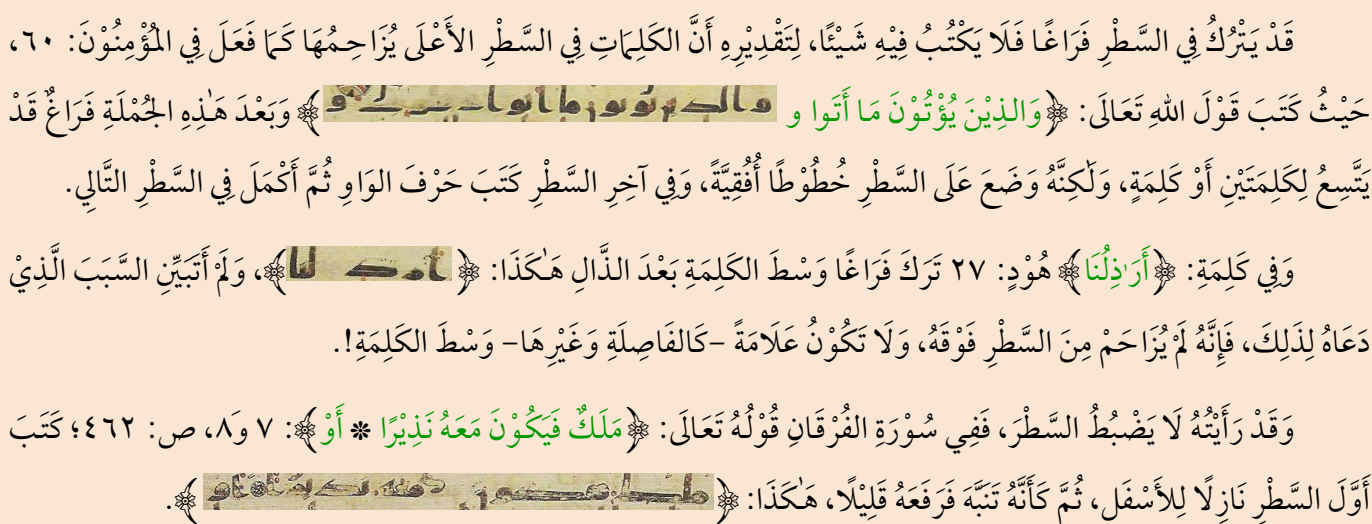 قَدْ يَتْرُكُ فِي السَّطْرِ فَرَاغًا فَلَا يَكْتُبُ فِيْهِ شَيْئًا، لِتَقْدِيْرِهِ أَنَّ الكَلِمَاتِ فِي السَّطْرِ الأَعْلَى يُزَاحِمُهَا كَمَا فَعَلَ فِي المُؤْمِنُوْنَ: ٦٠،
حَيْثُ كَتَبَ قَوْلَ اللهِ تَعَالَى: ﴿وَالذِيْنَ يُؤْتُوْنَ مَا أَتَوا و ﴾ وَبَعْدَ هَٰذِهِ الجُمْلَةِ فَرَاغٌ قَدْ
يَتَّسِعُ لِكَلِمَتَيْنِ أَوْ كَلِمَةٍ، وَلَٰكِنَّهُ وَضَعَ عَلَى السَّطْرِ خُطُوْطًا أُفُقِيَّةً، وَفِي آخِرِ السَّطْرِ كَتَبَ حَرْفَ الوَاوِ ثُمَّ أَكْمَلَ فِي السَّطْرِ التَّالِي.
وَفِي كَلِمَةِ: ﴿أَرَٰذِلُنَا﴾ هُوْدٍ: ٢٧ تَرَكَ فَرَاغًا وَسْطَ الكَلِمَةِ بَعْدَ الذَّالِ هَٰكَذَا: ﴿ ﴾، وَلَمْ أَتَبَيِّنِ السَّبَبَ الَّذِيْ
دَعَاهُ لِذَلِكَ، فَإِنَّهُ لَمْ يُزَاحَمْ مِنَ السَّطْرِ فَوْقَهُ، وَلَا تَكُوْنُ عَلَامَةً –كَالفَاصِلَةِ وَغَيْرِهَا– وَسْطَ الكَلِمَةِ!.
وَقَدْ رَأَيْتُهُ لَا يَضْبُطُ السَّطْرَ، فَفِي سُوْرَةِ الفُرْقَانِ قُوْلُهُ تَعَالَى: ﴿مَلَكٌ فَيَكُوْنَ مَعَهُ نَذِيْرًا * أَوْ﴾: ٧ و٨َ، ص: ٤٦٢؛ كَتَبَ
أَوَّلَ السَّطْرِ نَازِلًا لِلأَسْفَل، ثُمَّ كَأَنَّهُ تَنَبَّهَ فَرَفَعَهُ قَلِيْلًا، هَٰكَذَا: ﴿ ﴾.